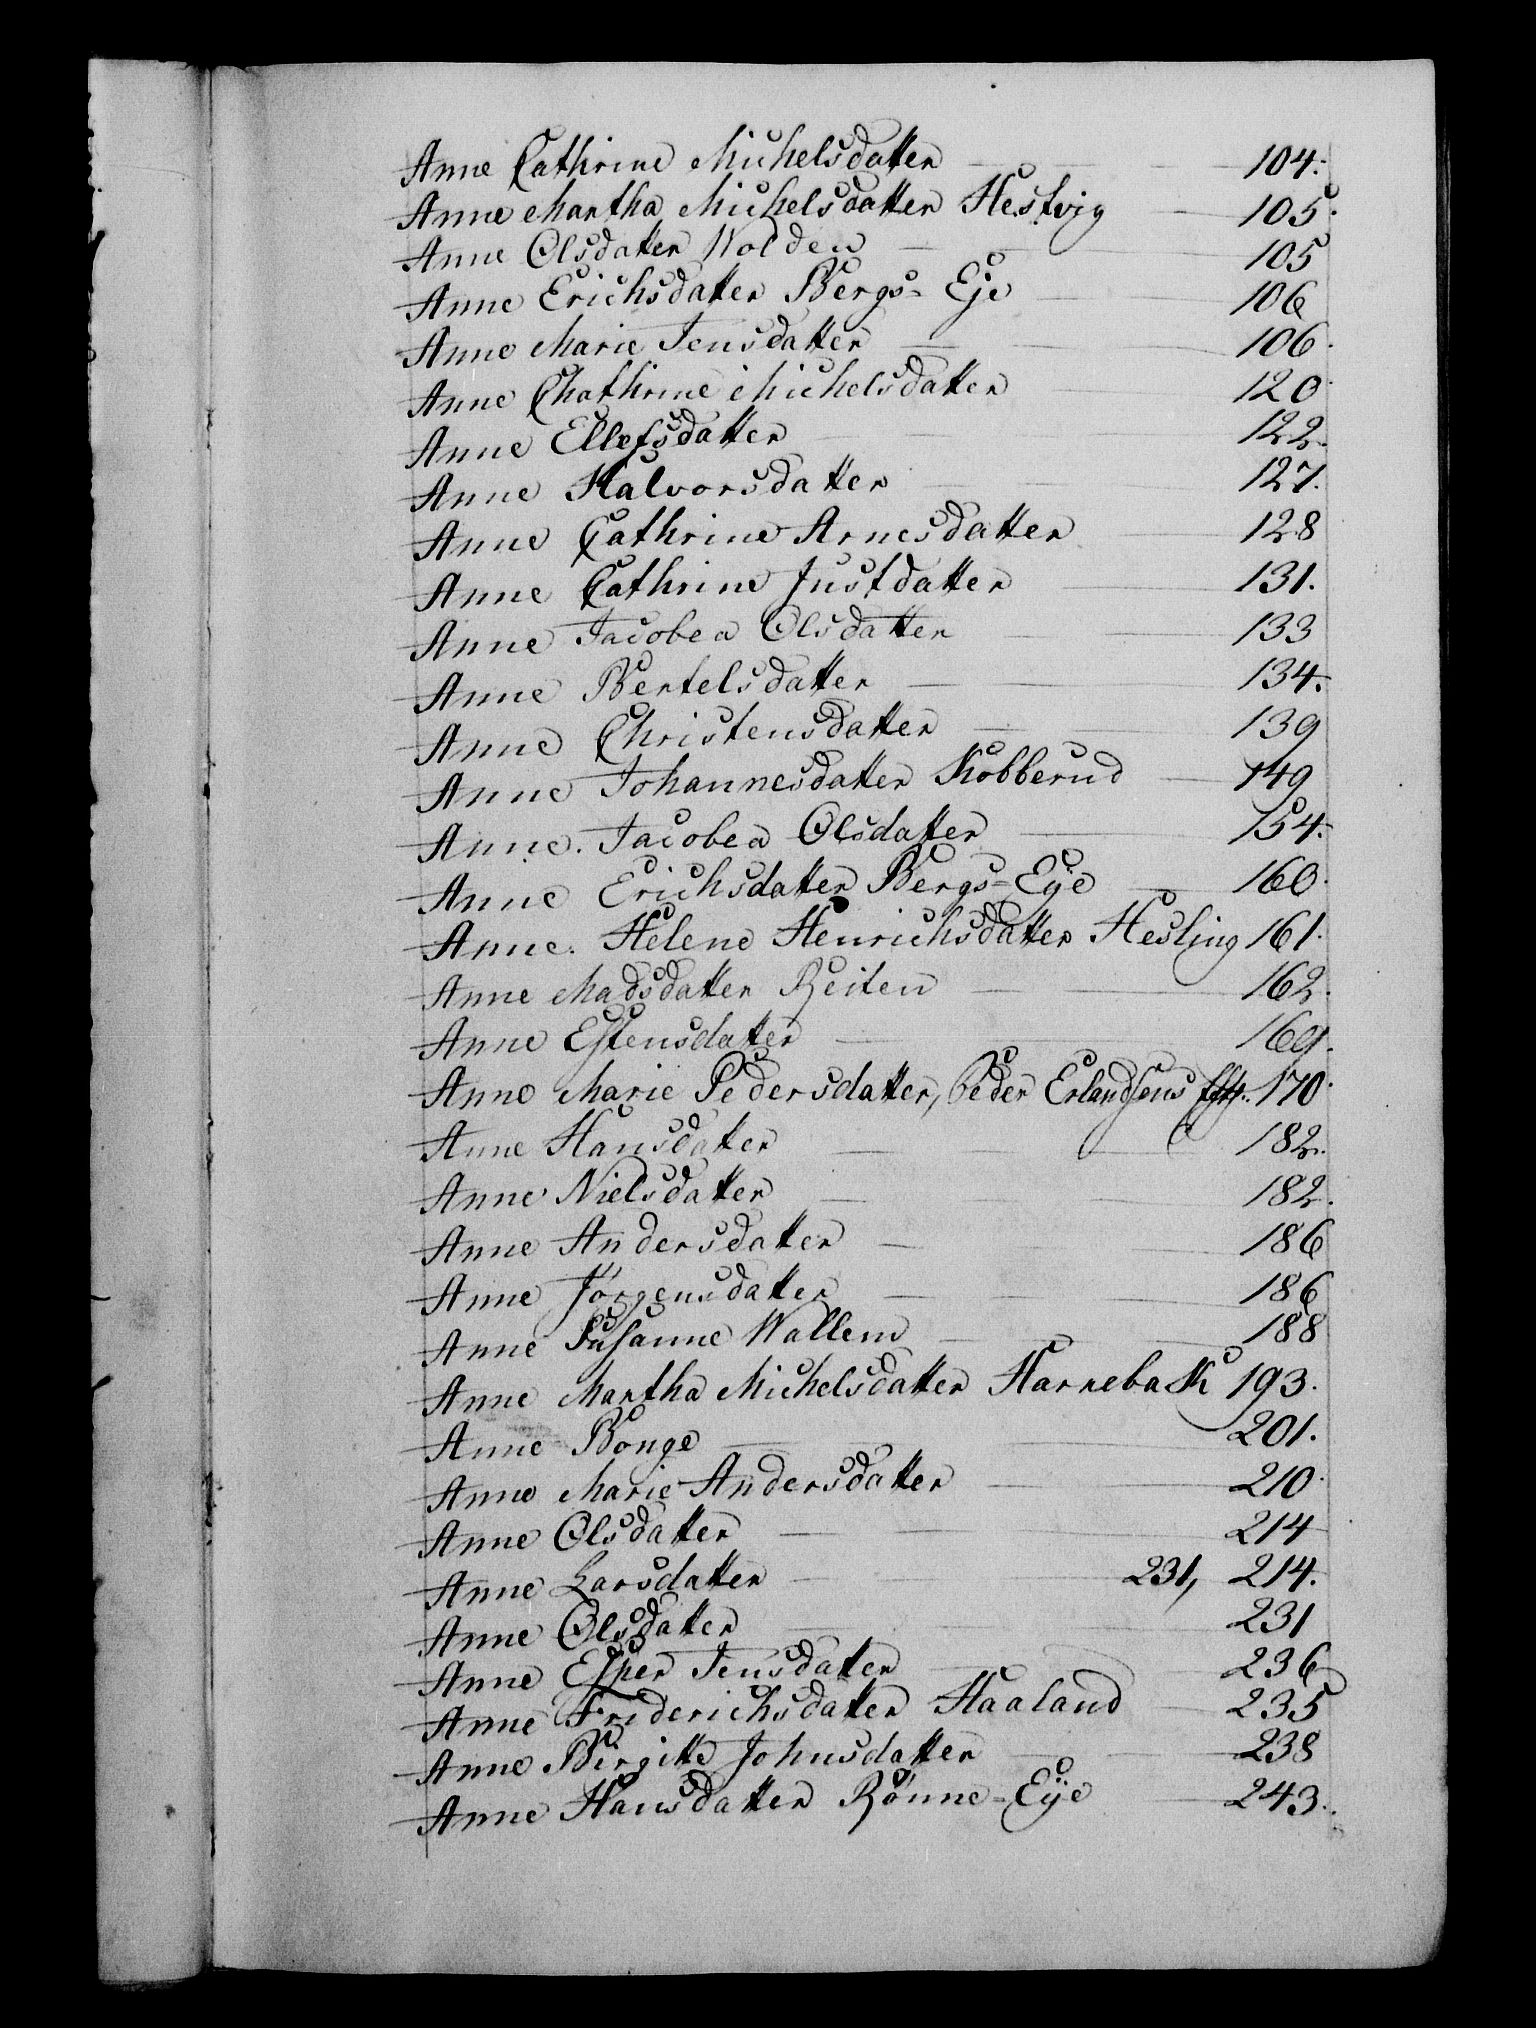 Anne Cathrine Michelsdatter 104.
Anne Martha Michelsdatter Hestvig 105.
Anne Olsdatter Wolden 105
Anne Erichsdatter Bergs-Eje 106
Anne Marie Jensdatter 106.
Anne Chathrine Michelsdatter 120.
Anne Ellefsdatter 122.
Anne Halvorsdatter 127.
Anne Cathrine Arnesdatter 128
Anne Cathrine Justdatter 131.
Anne Jacobea Olsdatter 133
Anne Bertelsdatter 134.
Anne Christensdatter 139
Anne Johannesdatter Kobberud 149
Anne. Jacobea Olsdatter 154.
Anne Erichsdatter Bergs-Eÿe 160.
Anne. Helene Henrichsdatter Hesling 161.
Anne Madsdatter Reiten 162.
Anne Estensdatter 169.
Anne Marie Pedersdatter, Peder Erlandsens 170.
Anne Hansdatter 182.
Anne Nielsdatter 182.
Anne Andersdatter 186
Anne Jörgensdatter 186
Anne Susanne Wallem 188
Anne Martha Michelsdatter Harneback 193.
Anne Bonge 201.
Anne Marie Andersdatter 210.
Anne Olsdatter 214
Anne Larsdatter 231, 214.
Anne Olsdatter 231
Anne Esper Jensdatter 236
Anne Friderichsdatter Haaland 235
Anne Birgitte Johnsdatter 238
Anne Hansdatter Rönne-Eÿe 243.